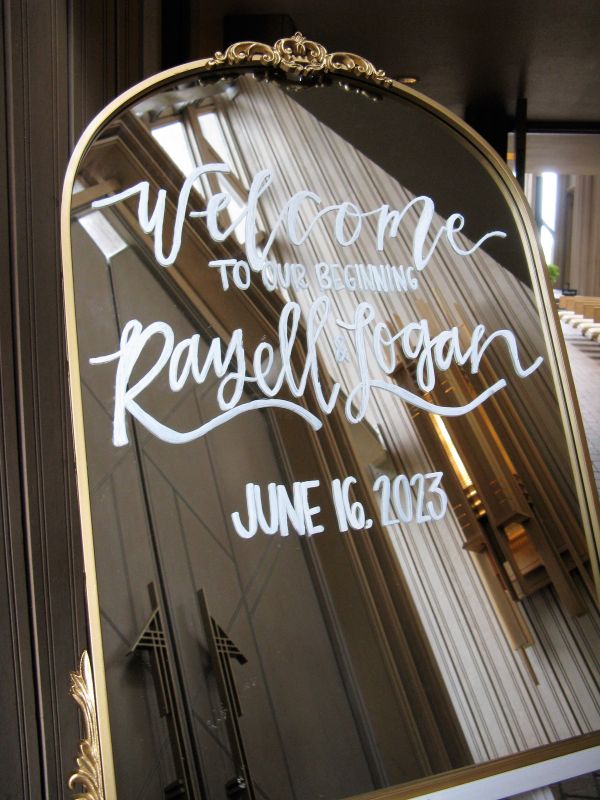 Welcome
TO OUR BEGINNING
Rayell & Logan
JUNE 16, 2023